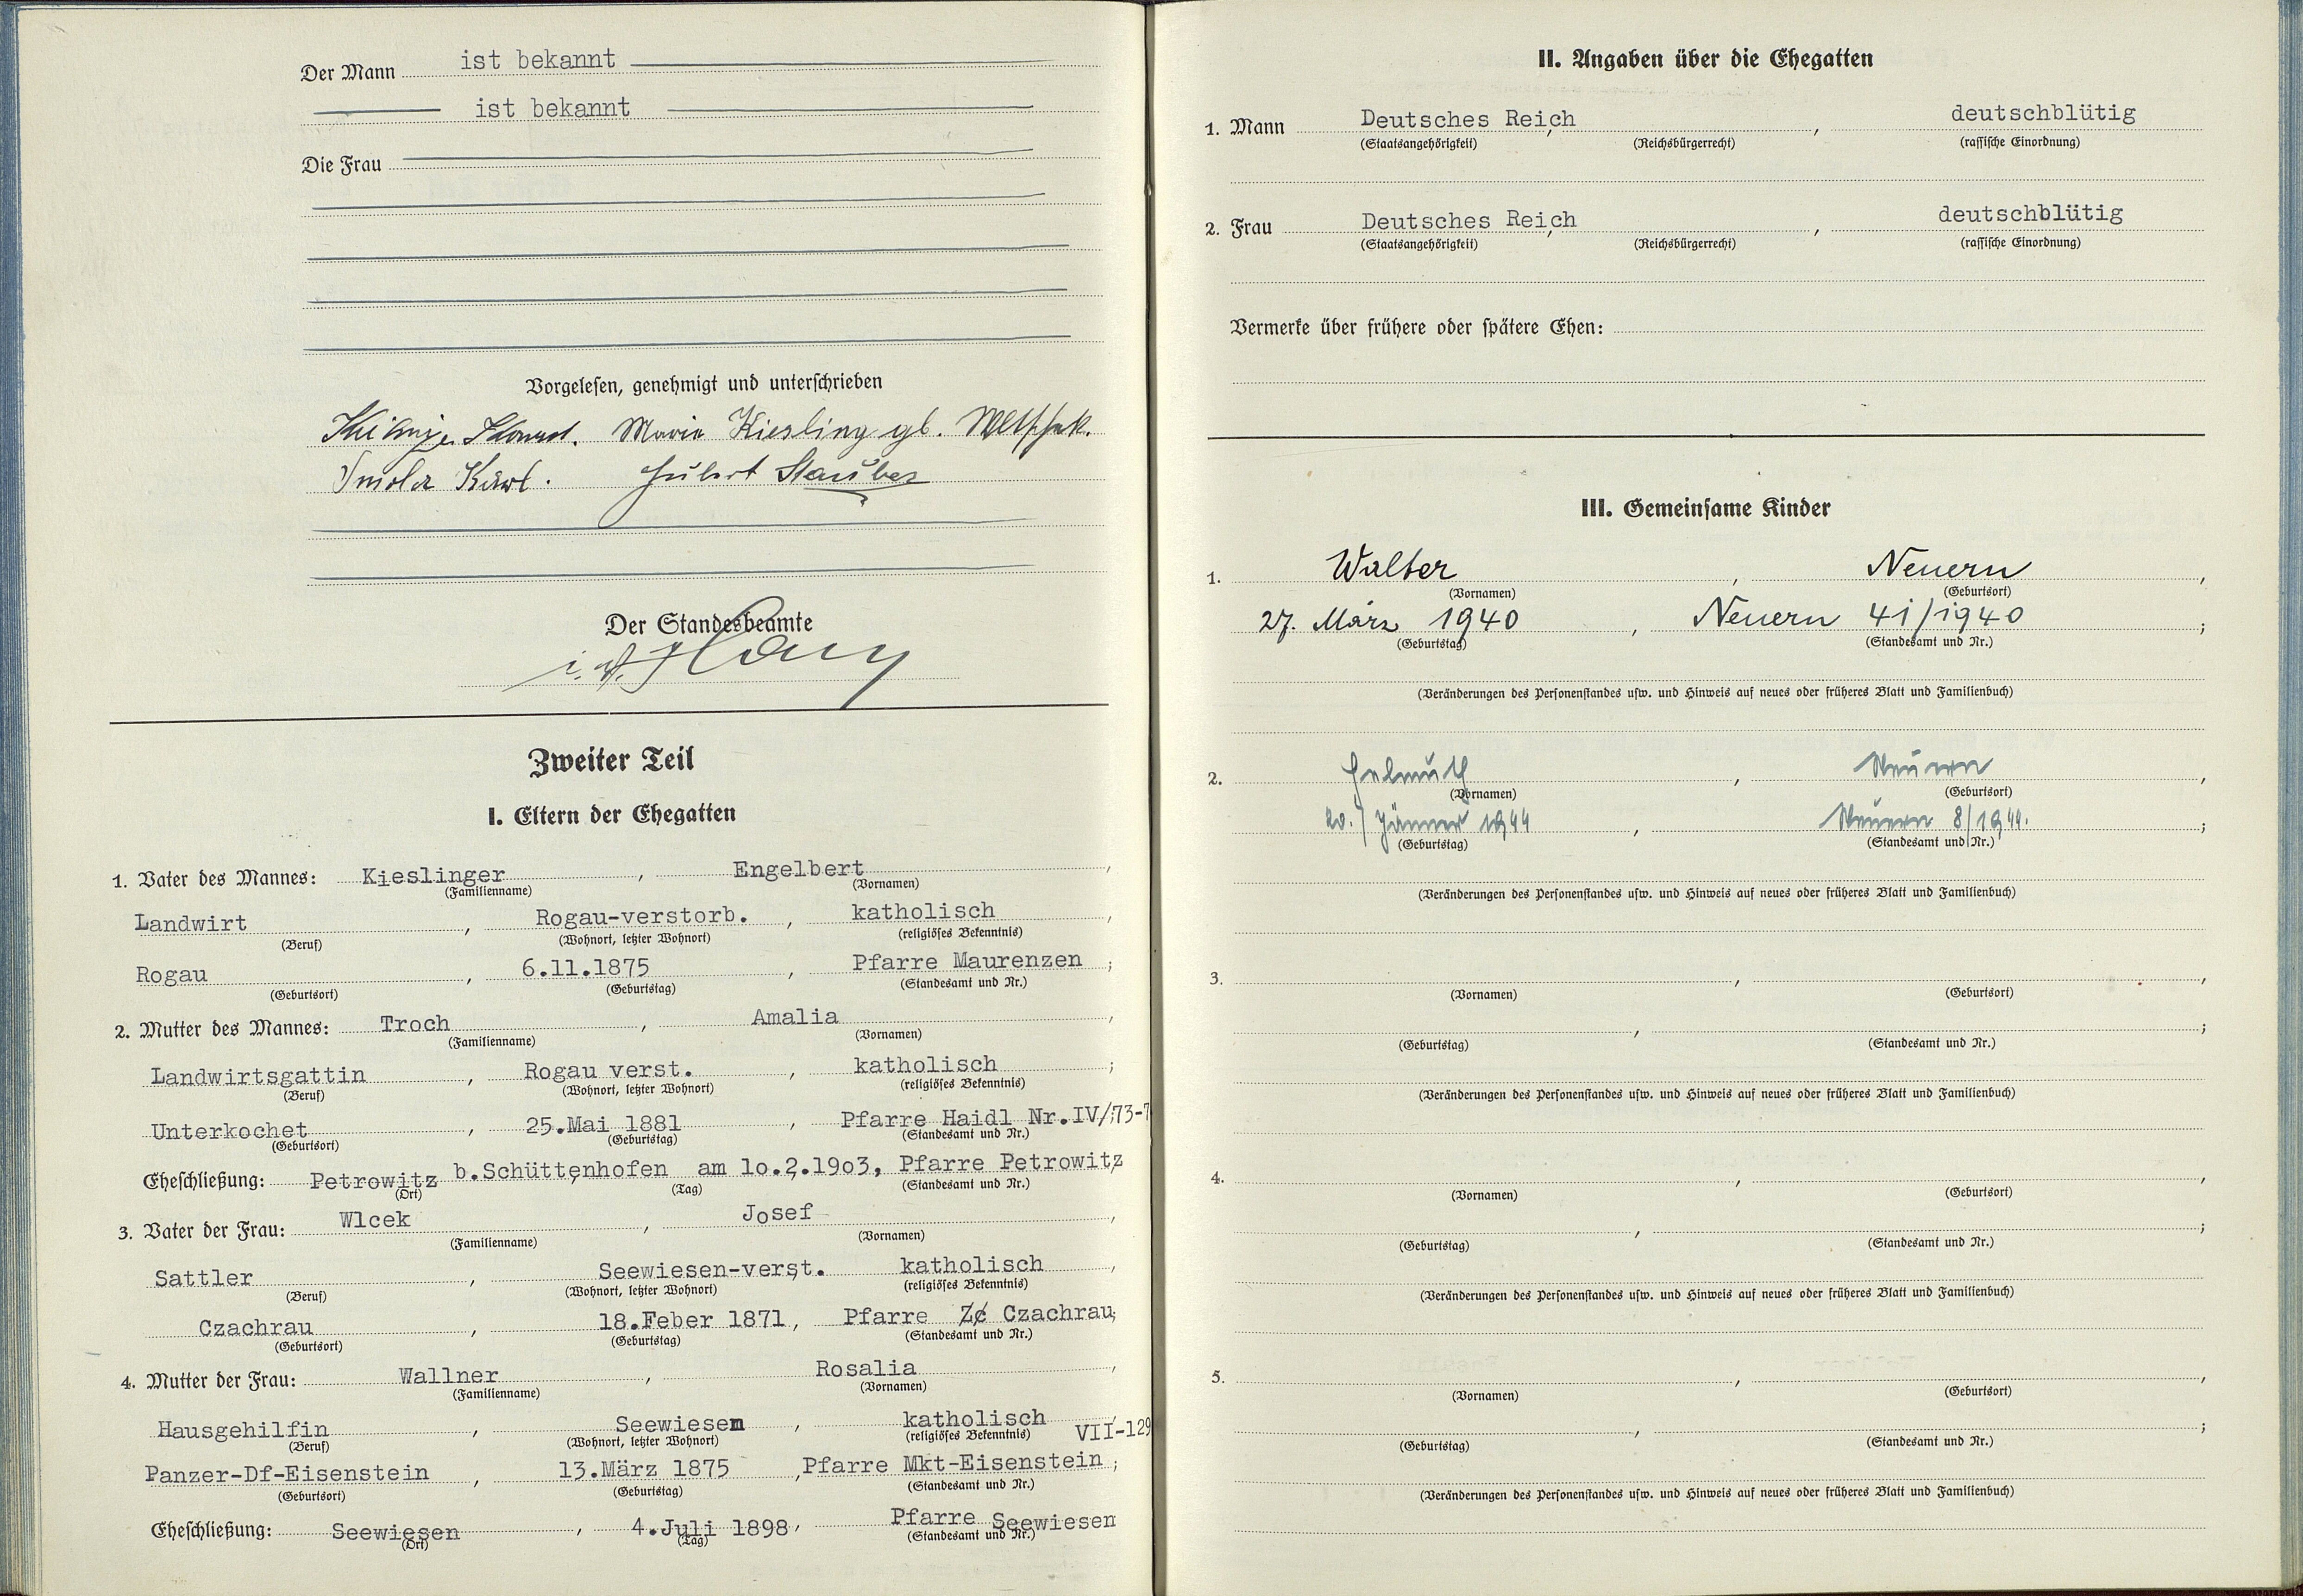 Der Mann ist bekannt
ist bekannt
Die Frau
Vorgelesen, genehmigt und unterschrieben
Maria Kiesling gb.
Smola Karl. Hubert Stauber
Der Standesbeamte
Zweiter Teil
I. Eltern der Ehegatten
1. Vater des Mannes: Kieslinger, Engelbert,
(Familienname) (Vornamen)
Landwirt, Rogau-verstorb., katholisch,
(Beruf) (Wohnort, letzter Wohnort) (religiöses Bekenntnis)
Rogau, 6.11.1875, Pfarre Maurenzen;
(Geburtsort) (Geburtstag) (Standesamt und Nr.)
2. Mutter des Mannes: Troch, Amalia,
(Familienname) (Vornamen)
Landwirtsgattin, Rogau verst., katholisch;
(Beruf) (Wohnort, letzter Wohnort) (religiöses Bekenntnis)
Unterkochet, 25.Mai 1881, Pfarre Haidl Nr.IV/73-7
(Geburtsort) (Geburtstag) (Standesamt und Nr.)
Eheschließung: Petrowitz b.Schüttenhofen am 1o.2.19o3, Pfarre Petrowitz
(Ort) (Tag) (Standesamt und Nr.)
3. Vater der Frau: Wlcek, Josef,
(Familienname) (Vornamen)
Sattler, Seewiesen-verst. katholisch,
(Beruf) (Wohnort, letzter Wohnort) (religiöses Bekenntnis)
Czachrau, 18.Feber 1871, Pfarre Zc Czachrau;
(Geburtsort) (Geburtstag) (Standesamt und Nr.)
4. Mutter der Frau: Wallner, Rosalia,
(Familienname) (Vornamen)
Hausgehilfin, Seewiesen, katholisch, VII-129
(Beruf) (Wohnort, letzter Wohnort) (religiöses Bekenntnis)
Panzer-Df-Eisenstein, 13.März 1875, Pfarre Mkt-Eisenstein;
(Geburtsort) (Geburtstag) (Standesamt und Nr.)
Eheschließung: Seewiesen, 4.Juli 1898, Pfarre Seewiesen
(Ort) (Tag) (Standesamt und Nr.)
II. Angaben über die Ehegatten
1. Mann Deutsches Reich, , deutschblütig
(Staatsangehörigkeit) (Reichsbürgerrecht) (rassische Einordnung)
2. Frau Deutsches Reich, , deutschblütig
(Staatsangehörigkeit) (Reichsbürgerrecht) (rassische Einordnung)
Vermerke über frühere oder spätere Ehen:
III. Gemeinsame Kinder
1. Walter, Neuern,
(Vornamen) (Geburtsort)
27. März 1940, Neuern 41/1940;
(Geburtstag) (Standesamt und Nr.)
(Veränderungen des Personenstandes usw. und Hinweis auf neues oder früheres Blatt und Familienbuch)
2. Helmuth, Neuern,
(Vornamen) (Geburtsort)
20. Jänner 1944, Neuern 8/1944.;
(Geburtstag) (Standesamt und Nr.)
(Veränderungen des Personenstandes usw. und Hinweis auf neues oder früheres Blatt und Familienbuch)
3. , ,
(Vornamen) (Geburtsort)
, ;
(Geburtstag) (Standesamt und Nr.)
(Veränderungen des Personenstandes usw. und Hinweis auf neues oder früheres Blatt und Familienbuch)
4. , ,
(Vornamen) (Geburtsort)
, ;
(Geburtstag) (Standesamt und Nr.)
(Veränderungen des Personenstandes usw. und Hinweis auf neues oder früheres Blatt und Familienbuch)
5. , ,
(Vornamen) (Geburtsort)
, ;
(Geburtstag) (Standesamt und Nr.)
(Veränderungen des Personenstandes usw. und Hinweis auf neues oder früheres Blatt und Familienbuch)